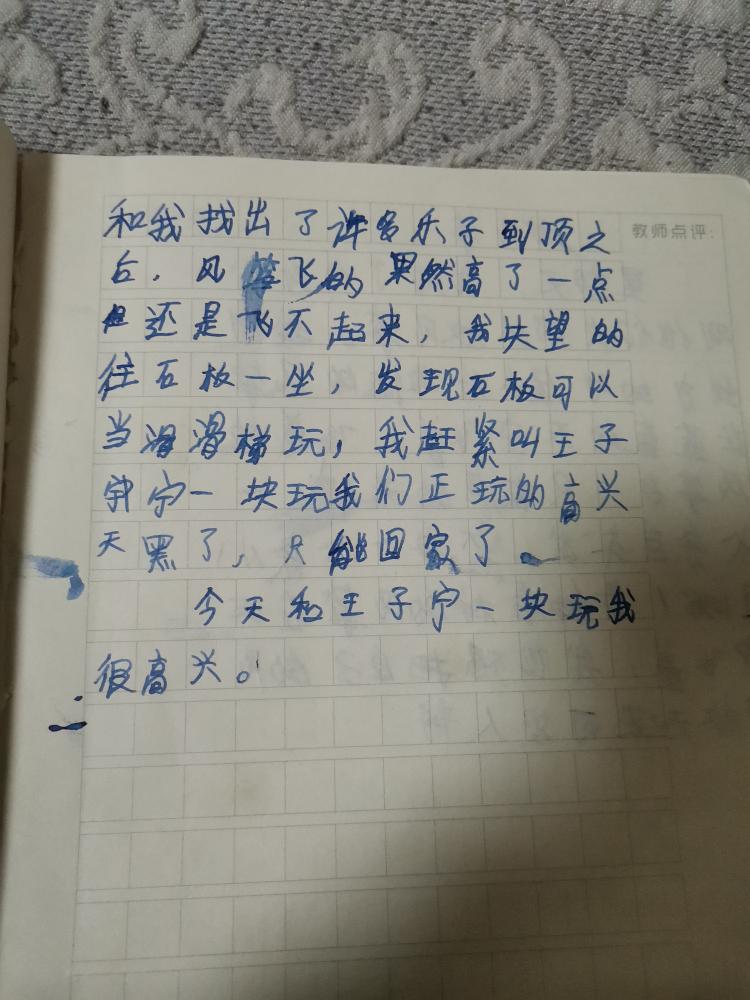 和我找出了许多乐子到顶之
教师点评:
后，风筝飞的果然高了一点
但还是飞不起来，我失望的
往石板一坐，发现石板可以
当滑滑梯玩，我赶紧叫王子
宁一块玩我们正玩的高兴
天黑了，只能回家了。
今天和王子宁一块玩我
很高兴。